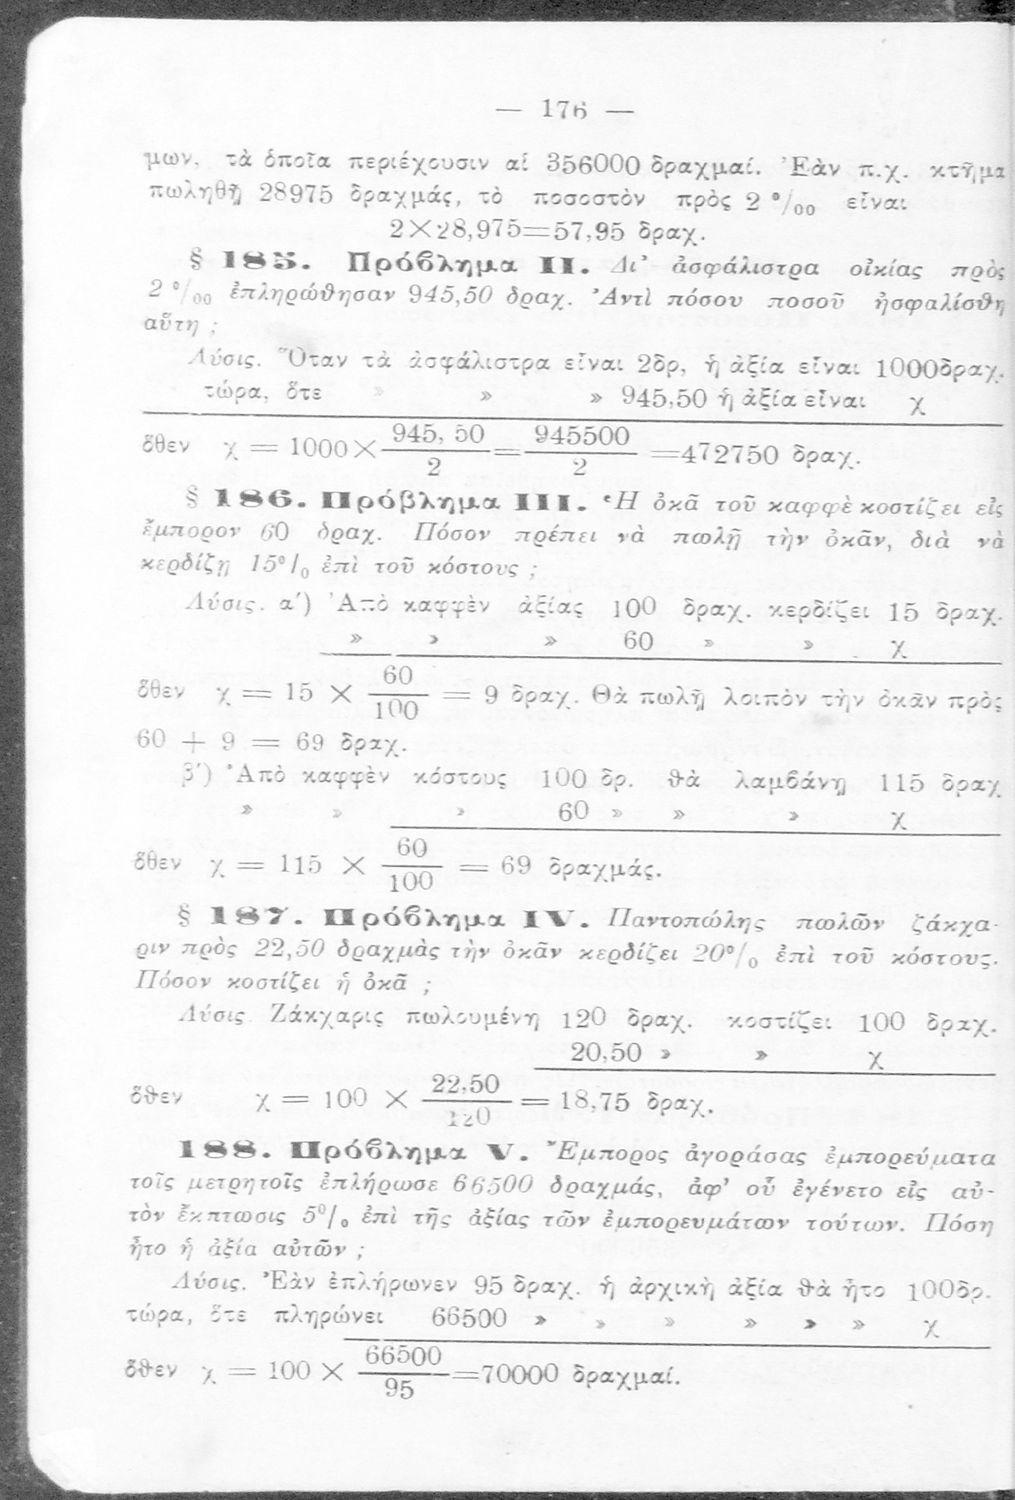 — 176 —
μων, τὰ ὁποῖα περιέχουσιν αἱ 356000 δραχμαί. Ἐὰν π.χ. κτῆμα
πωληθῇ 28975 δραχμάς, τὸ ποσοστὸν πρὸς 2 °/₀₀ εἶναι
2×28,975=57,95 δραχ.
§ 185. Πρόβλημα II. Δι’ ἀσφάλιστρα οἰκίας πρὸς
2 °/₀₀ ἐπληρώθησαν 945,50 δραχ. Ἀντὶ πόσου ποσοῦ ἠσφαλίσθη
αὕτη ;
Λύσις. Ὅταν τὰ ἀσφάλιστρα εἶναι 2δρ, ἡ ἀξία εἶναι 1000δραχ.
τώρα, ὅτε » » » 945,50 ἡ ἀξία εἶναι χ
ὅθεν χ = 1000× 945,50/2 = 945500/2 =472750 δραχ.
§ 186. Πρόβλημα III. Ἡ ὀκᾶ τοῦ καφφὲ κοστίζει εἰς
ἔμπορον 60 δραχ. Πόσον πρέπει νὰ πωλῇ τὴν ὀκᾶν, διὰ νὰ
κερδίζῃ 15°/₀ ἐπὶ τοῦ κόστους ;
Λύσις. α΄) Ἀπὸ καφφὲν ἀξίας 100 δραχ. κερδίζει 15 δραχ.
» » » 60 » » χ
ὅθεν χ = 15 × 60/100 = 9 δραχ. Θὰ πωλῇ λοιπὸν τὴν ὀκᾶν πρὸς
60 + 9 = 69 δραχ.
β΄) Ἀπὸ καφφὲν κόστους 100 δρ. θὰ λαμβάνῃ 115 δραχ
» » » 60 » » » χ
ὅθεν χ = 115 × 60/100 = 69 δραχμάς.
§ 187. Πρόβλημα IV. Παντοπώλης πωλῶν ζάκχα-
ριν πρὸς 22,50 δραχμὰς τὴν ὀκᾶν κερδίζει 20°/₀ ἐπὶ τοῦ κόστους.
Πόσον κοστίζει ἡ ὀκᾶ ;
Λύσις. Ζάκχαρις πωλουμένη 120 δραχ. κοστίζει 100 δραχ.
20,50 » » χ
ὅθεν χ = 100 × 22,50/120 = 18,75 δραχ.
188. Πρόβλημα V. Ἔμπορος ἀγοράσας ἐμπορεύματα
τοῖς μετρητοῖς ἐπλήρωσε 66500 δραχμάς, ἀφ’ οὗ ἐγένετο εἰς αὐ-
τὸν ἔκπτωσις 5°/₀ ἐπὶ τῆς ἀξίας τῶν ἐμπορευμάτων τούτων. Πόση
ἦτο ἡ ἀξία αὐτῶν ;
Λύσις. Ἐὰν ἐπλήρωνεν 95 δραχ. ἡ ἀρχικὴ ἀξία θὰ ἦτο 100δρ.
τώρα, ὅτε πληρώνει 66500 » » » » » » χ
ὅθεν χ = 100 × 66500/95 =70000 δραχμαί.